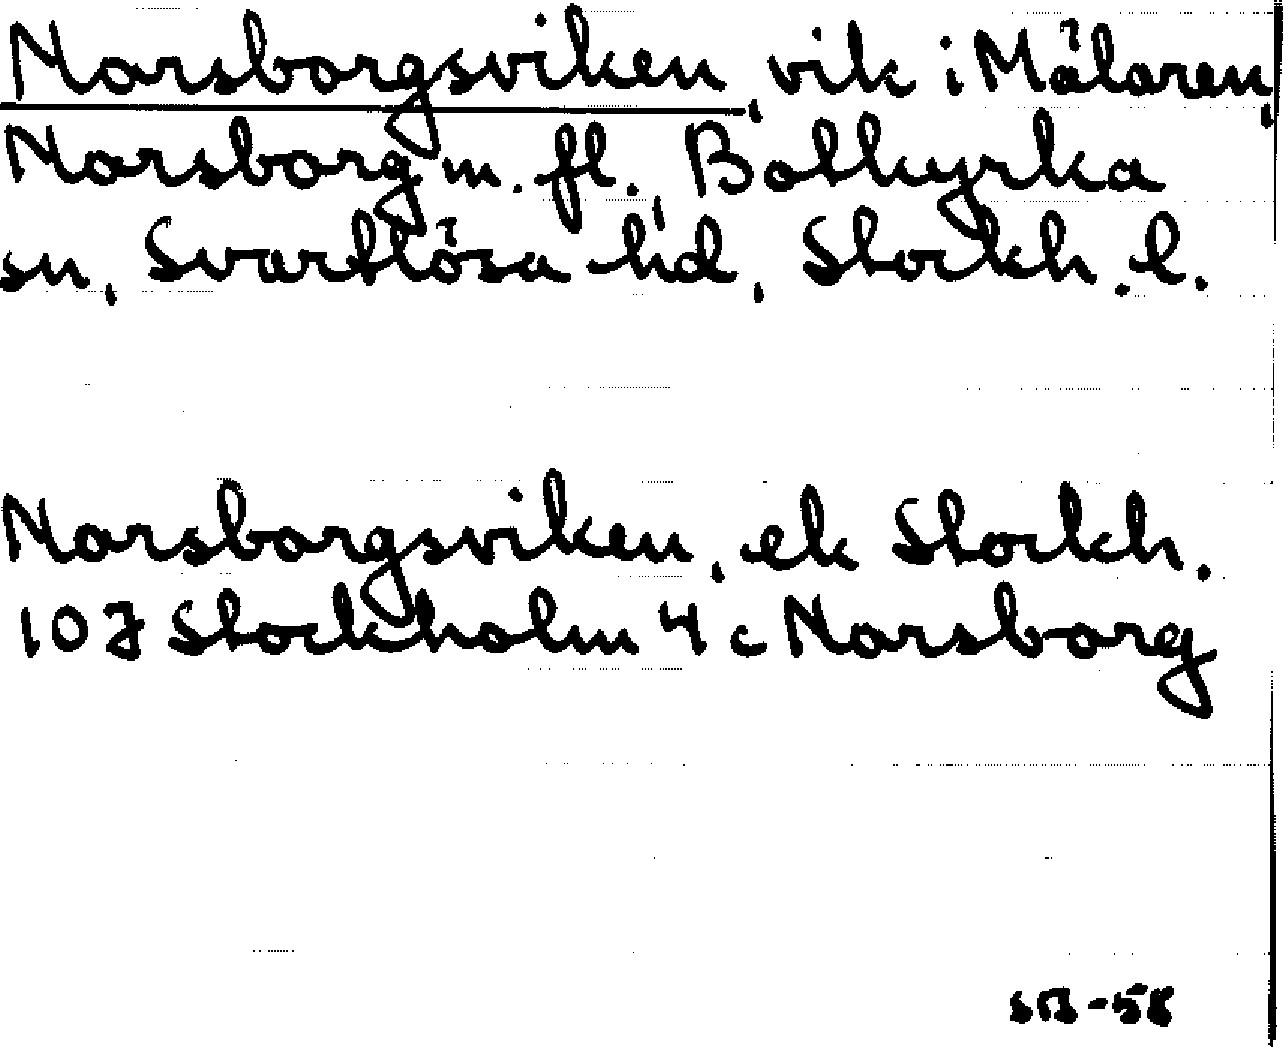 Norsborgsviken, vik i Mälaren,
Norsborg m. fl., Botkyrka
sn, Svartlösa hd, Stockh. l.
Norsborgsviken, ek Stockh.
10J Stockholm 4c Norsborg
SB-58